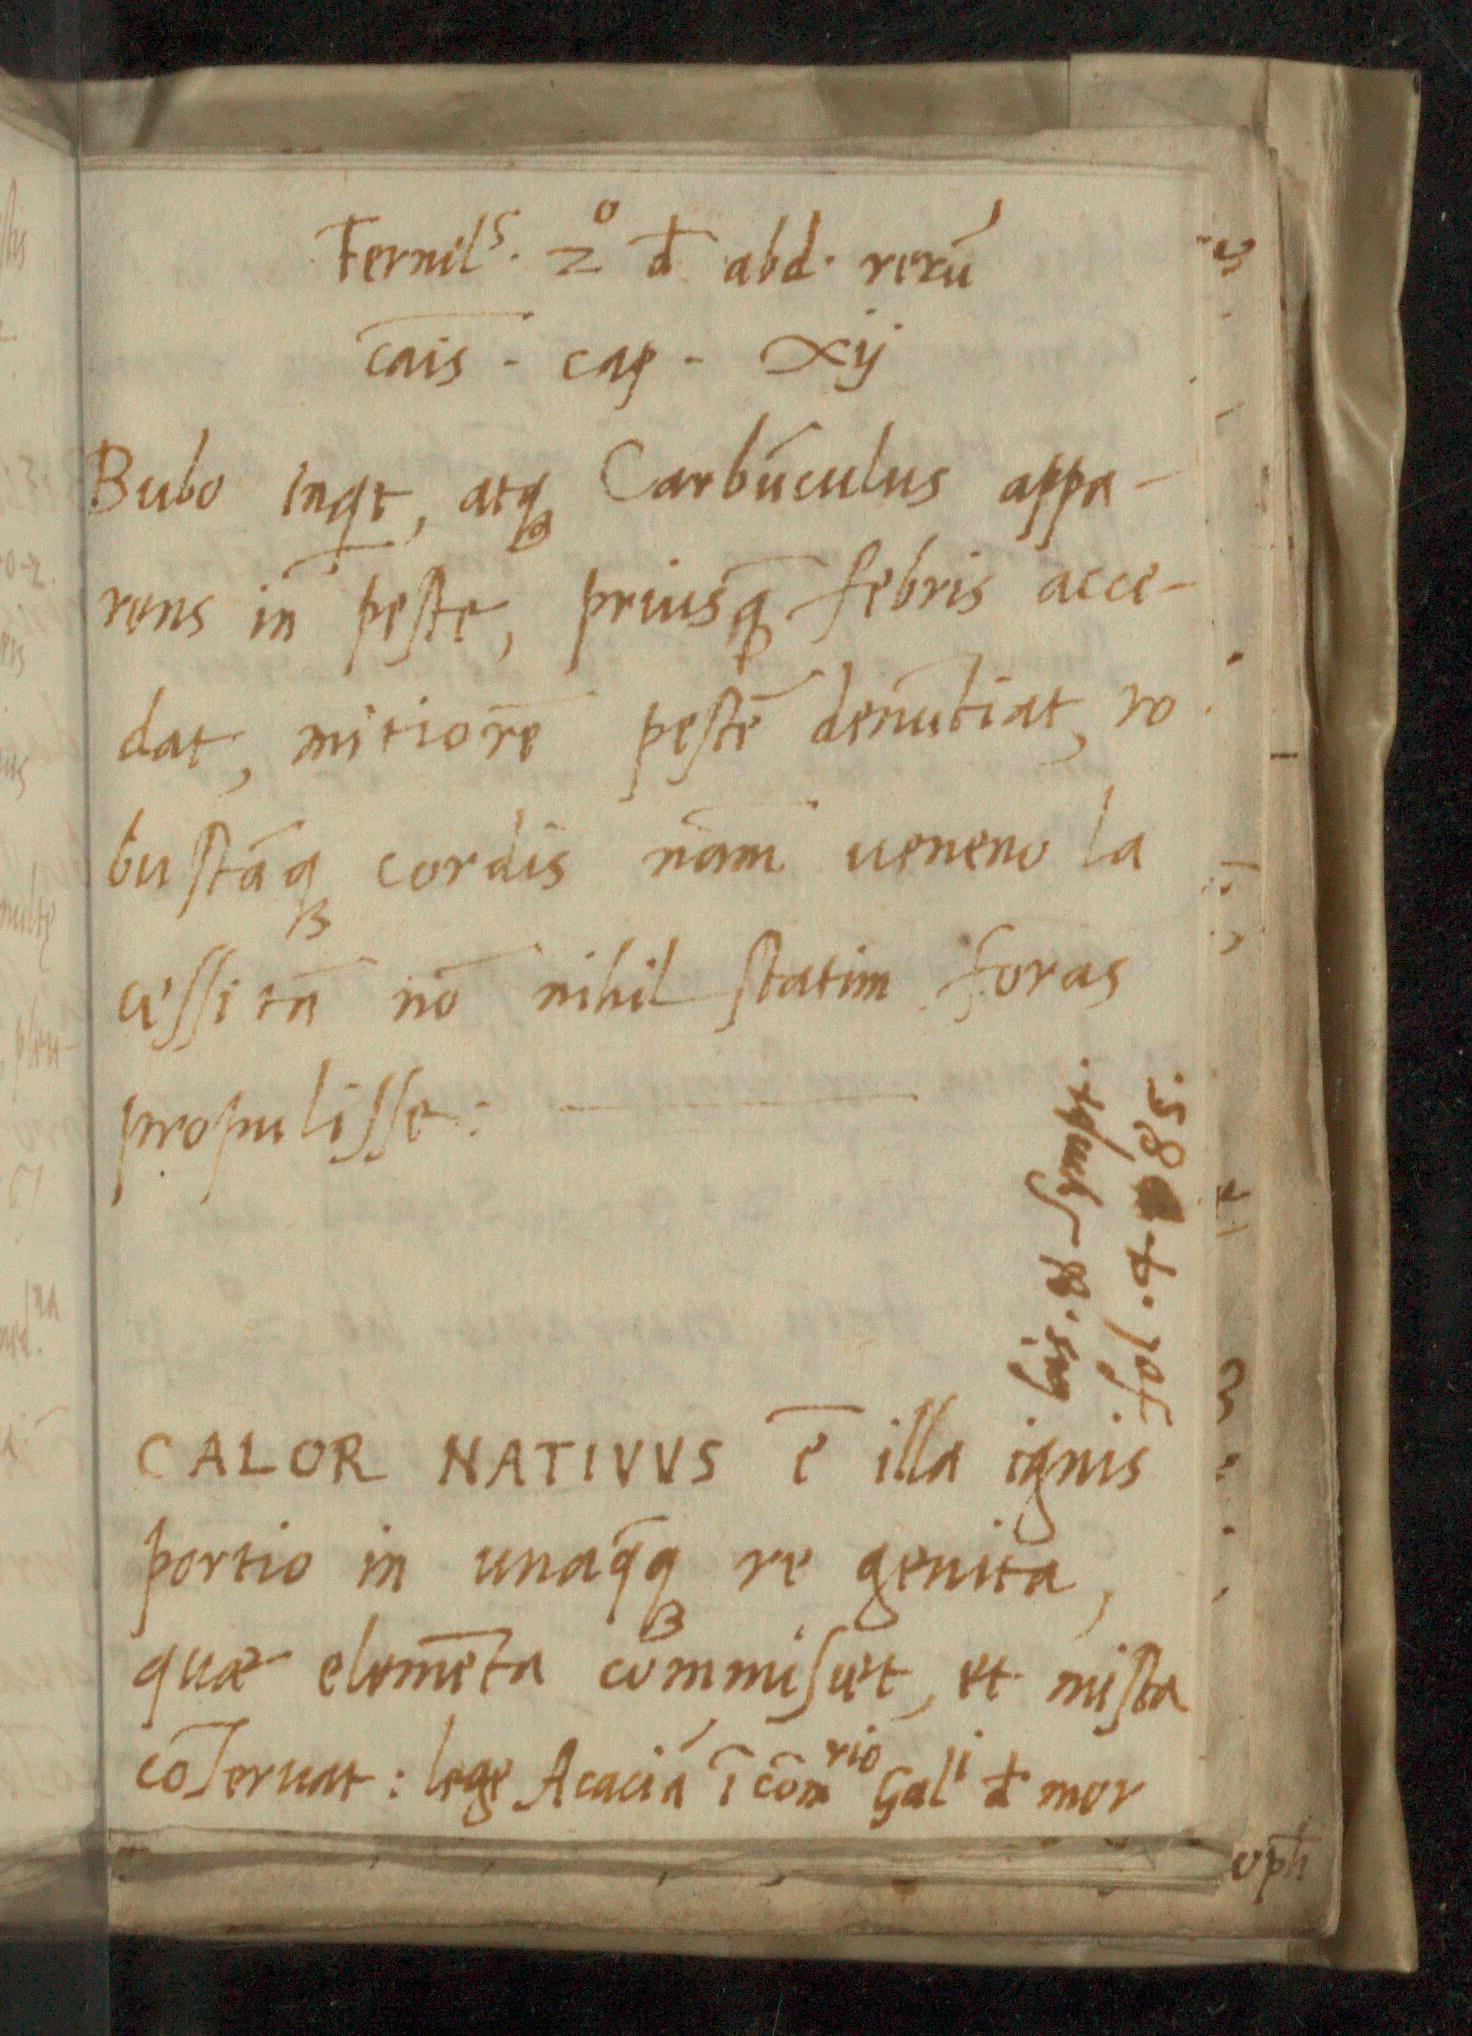 Fernelˢ. 2° đ abd. rerū
cāis. cap. xij
Bubo inqt, atqꝫ Carbūculus appa-
rens in peste, priusq̄ febris acce-
dat, mitiorē pestē denūtiat, ro
bustāqꝫ cordis nām ueneno la
cessitā nō nihil statim foras
propulisse:
fol. 4 85.
CALOR NATIVVS ē illa ignis
portio in unaq̄qꝫ re genita,
quæ elemēta commiscet, et mista
cōseruat: lege Acaciā ī cōmʳⁱᵒ Galⁱ đ mor